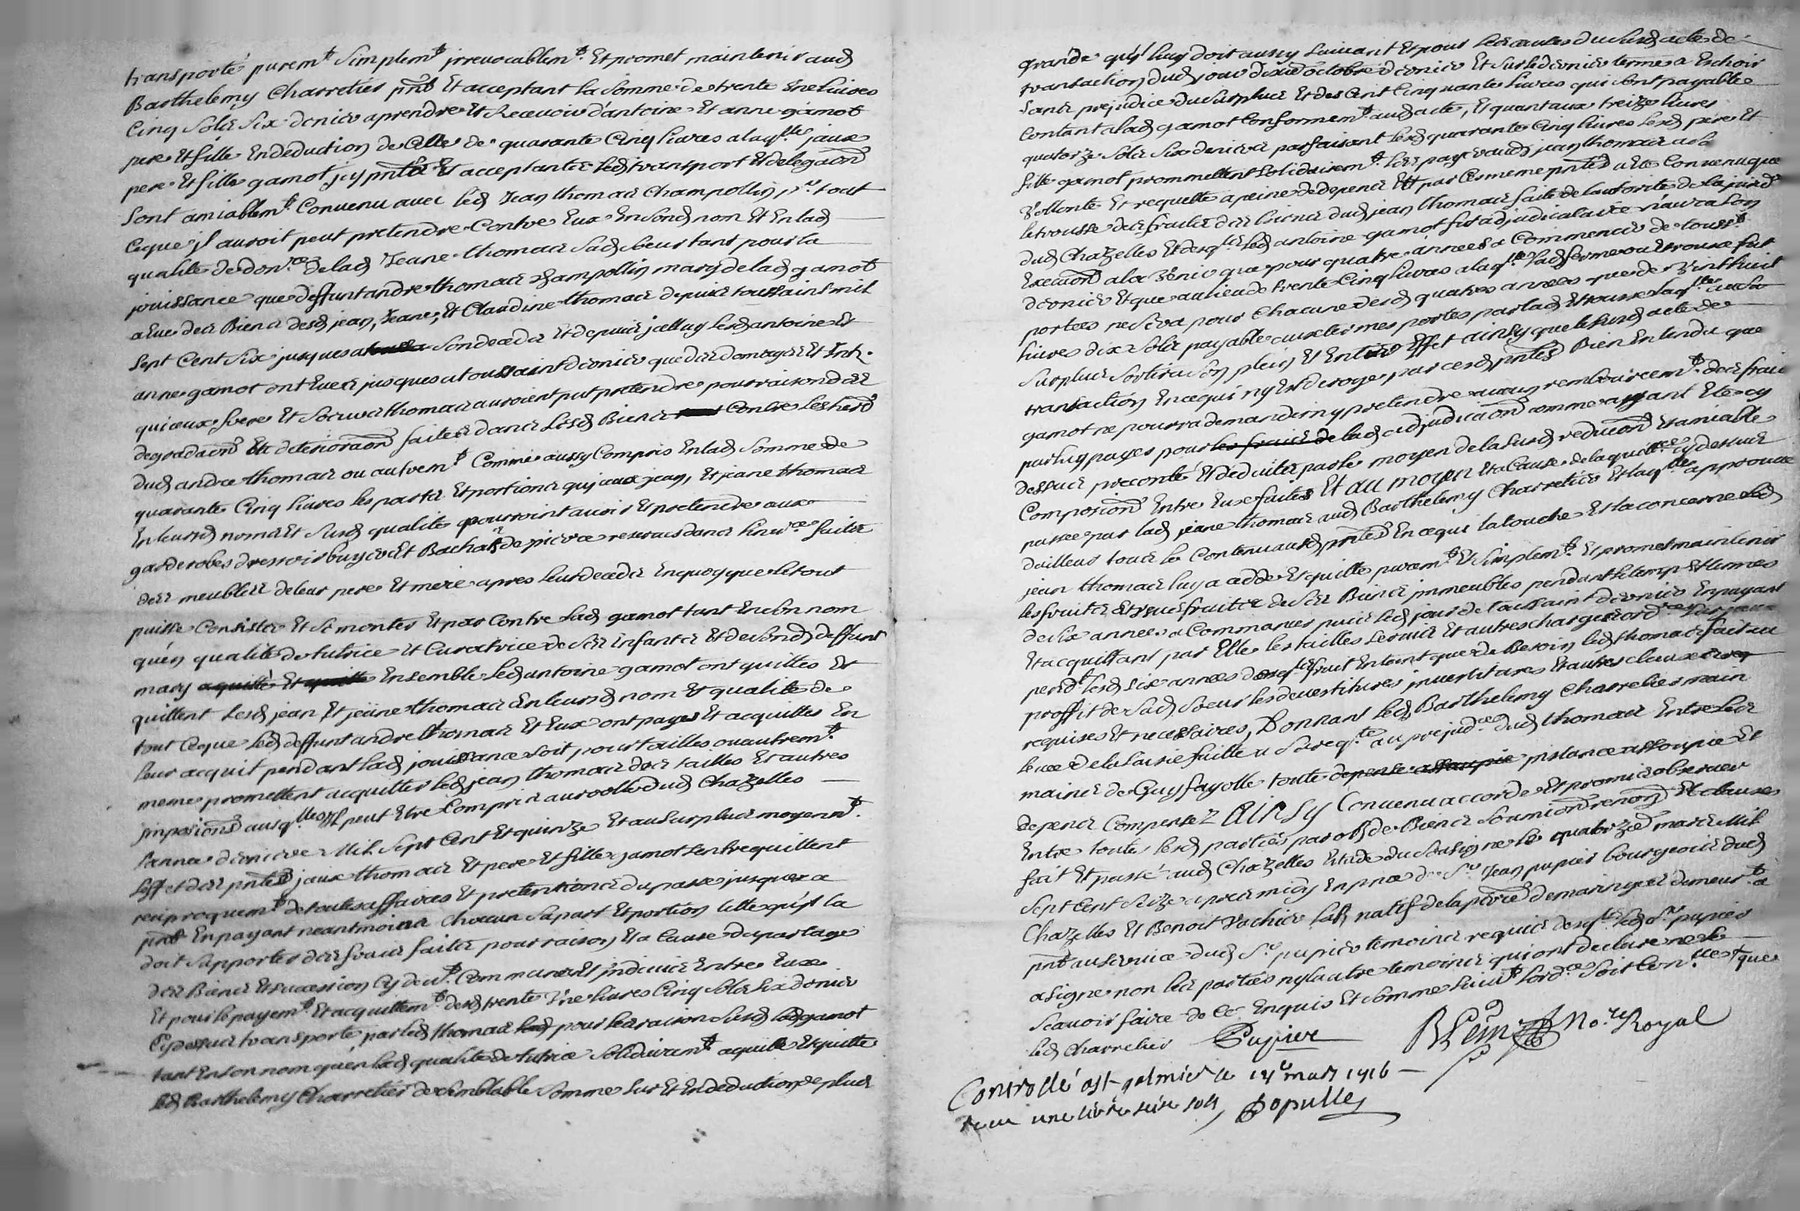 transporté purem^t Simplem^t jrrevocablem^t Et promet maintenir aud
Barthelemy Charretier pnt Et acceptant la Somme de trente Une livres
Cinq Solz Six deniers a prendre Et Recevoir d'antoine Et anne gamot
pere Et fille En deduction de Celle de quarante Cinq livres alaq^lle jaux
pere Et fille gamot jcy pnts Et acceptantz Led transport Et delegaon
Sont amiablem^t Convenu avec led Jean thomas Champollin p^r tout
Ceque jl auroit peut pretendre Contre Eux En Sond nom Et En lad
qualité de don^re de lad Jeane thomas Sad Soeur tant pour la
jouissance que deffunt andre thomas Champollin mary de lad gamot
a Eue des Biens desd jean, Jeane, Et Claudine thomas depuis toussaint mil
Sept Cent Six jusques a Son deceds Et depuis jcelluy lesd antoine Et
anne gamot ont Eue jusques a toussaint dernier que des domages Et Int.
qu'eux frere Et Soeurs thomas auroient put pretendre pour raison des
degradaons Et deterioraons faites dans lesd Biens Contre les herit
dud andre thomas ou autrem^t Comme aussy Compris En lad Somme de
quarante Cinq livres les parts Et portions qu'jaux jean, Et jeane thomas
En leursd noms Et Susd qualité pourroint avoir Et pretendre aux
garderobes dressoir buyer Et Bachat de pierre reservés dans l'inv^re faite
des meubles de leur pere Et mere apres leur deceds En quoy que le tout
puisse Consister Et Se monter Et par Contre Lad gamot tant En Son nom
qu'en qualité de tutrice Et Curatrice de Ses Enfants Et de Sond deffunt
mary aquitté Et quitte Ensemble led antoine gamot ont quittés Et
quittent lesd jean Et jeane thomas En leursd nom Et qualité de
tout Ceque led deffunt andre thomas Et Eux ont payés Et acquittés En
leur acquit pendant lad jouissance Soit pour tailles ou autrem^t
meme promettent acquitter led jean thomas des tailles Et autres
jmposions ausq^lles jl peut Etre Compris au rolle dud Chazelles
l'année derniere Mil Sept Cent Et quinze Et au Surplus moyenn^t
l'effet des pntes jaux thomas Et pere Et fille gamot S'entrequittent
reciproquem^t de toutes affaires Et pretentions du passé jusques a
pnt En payant neantmoins Chacun Sa part Et portion telle qu'il la
doit Supporter des fraix faites pour raison Et a Cause du partage
des Biens Et succession Cy dev^t Communs Et indivis Entre Eux
Et pour le payem^t Et acquittem^t desd trente Une livres Cinq Solz Six deniers
Cy dessus transporté par led thomas pour les raison Susd lad gamot
tant En Son nom qu'en lad qualité de tutrice Solidairem^t aquitté Et quitte
led Barthelemy Charretier de Semblable Somme Sur Et En deduction de plus
grande qu'il luy doit aussy Suivant Et pour les Causes du Susd acte de
transaction dud jour dixe octobre dernier Et Sur le dernier terme a Echoir
Sans prejudice du Surplus Et des Cent Cinquante livres qui Sont payables
Contant a lad gamot Conformem^t aud acte, Et quant aux treize livres
quatorze Solz Six deniers parfaisant lesd quarante Cinq livres lesd pere Et
fille gamot promettent Solidairem^t les payer aud jean thomas a Sa
Vollonté Et requette a peine de depens Et par Ces meme pntes a Eté Convenu que
la trousse des fruits des biens dud jean thomas faite de l'autorité de la jurid
dud Chazelles Et desq^ls led antoine gamot fut adjudicataire n'aura Son
Execuon a la Venir que pour quatre années a Commencer de touss^t
dernier Et que au lieu de trente Cinq livres alaq^lle lad ferme ou trousse fut
portées ne Sera pour Chacune desd quatre années que de Vint huit
livres dix Solz payable aux termes portés par lad trousse laq^lle au
Surplus Sortira Son plein Et Entier Effet ainsy que le Susd acte de
transaction En ce qui n'y Est derogé par Ces pntes Bien Entendu que
gamot ne pourra demander ny pretendre aucun remboursem^t des fraix
par luy payés pour les fraix de lad adjudicaon comme ayant Eté cy
dessus precompté Et deduites par le moyen de la Susd reducon Et amiable
Composion Entre Eux faites Et au moyen Et a Cause de la quitt^ce Cy dessus
passée par lad jeane thomas aud Barthelemy Charretier Et laq^lle approuve
d'ailleurs tout le Contenu aux pntes En ce qui la touche Et la concerne led
jean thomas luy a cedé Et quitté purem^t Et Simplem^t Et promet maintenir
les fruits Et Usufruits de Ses Biens immeubles pendant le temps Et termes
de Six années a Commancer puis led jour de toussaint dernier En payant
Et acquittant par Elle les tailles Servis Et autres charges ord^res
pend^t lesd Six années desq^ls fruit En tant que de Besoin led thomas S'est au
proffit de Sad Soeur les devestitures jnvestitures Et autres clauses
requises Et necessaires, Donnant led Barthelemy Charretier main
levée de la Saisie faitte a Sa req^te au prejud^ce dud thomas Entre les
mains de Guy fayolle toute instance assoupie Et
depens Compensez Ainsy Convenu accordé Et promis observer
Entre toutes lesd parties par obl de Biens Soumions renons Et clauses
fait Et passé aud Chazelles Etude du Soussigné le quatorze mars Mil
Sept Cent Seize apres midy En pnce de S^r Jean pupier bourgeois dud
Chazelles Et Benoit Vachier lab natif de la p de maringes demeur^t a
pnt au Service dud S^r pupier temoins requis desq^ls led S^r pupier
a Signé non les parties ny l'autre temoins qui ont declaré ne le
Scavoir faire de Ce Enquis Et Sommés Suiv^t l'ord^ce Soit Con^lle que
led Charretier
Pupier
No^re Royal
Controllé a S^t galmier le 14^e mars 1716
recu une livre seize sols
Populle